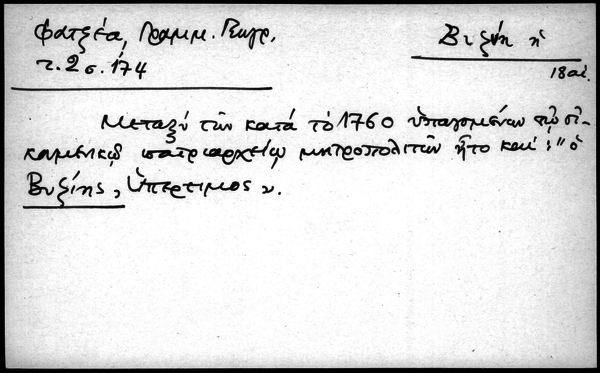 Φατζέα, Γραμμ. Γεωγρ.
τ. 2 σ. 174
Βιζύη ἡ
18 αἰ.
Μεταξύ τῶν κατά τό 1760 ὑπαγομένων τῷ οἰ-
κουμενικῷ πατριαρχείῳ μητροπολιτῶν ἦτο καί: "ὁ
Βυζίης, Ὑπέρτιμος".